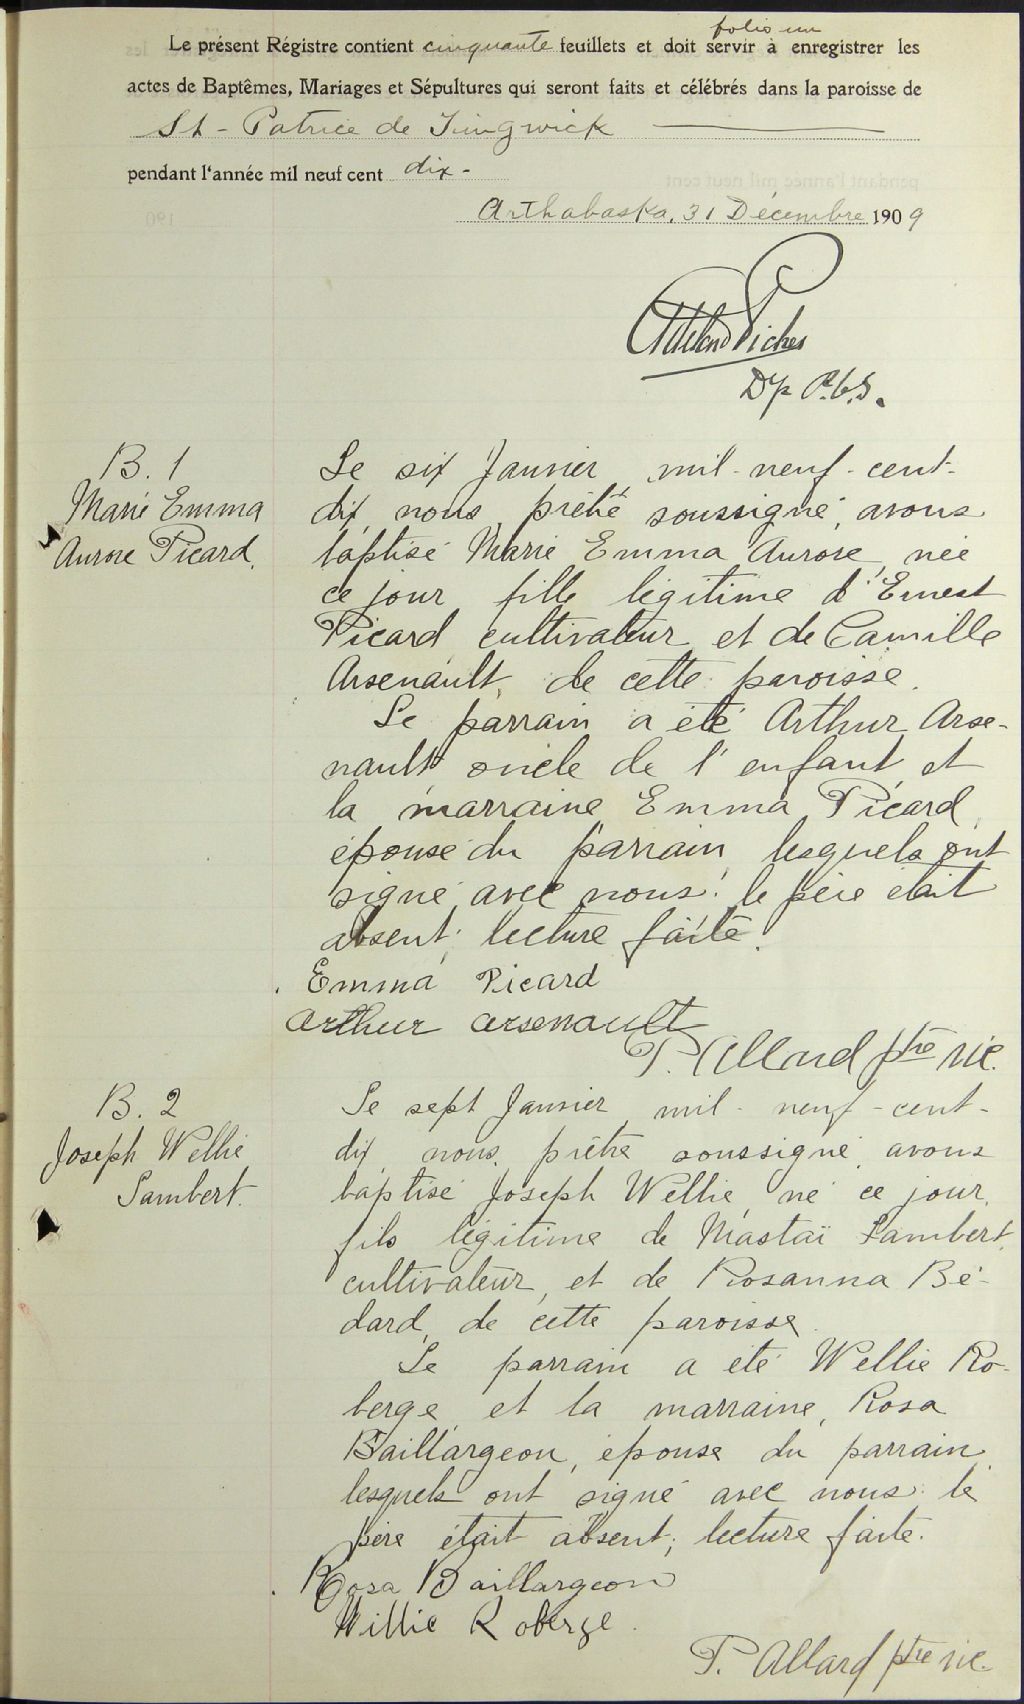 folio un
Le présent Régistre contient cinquante feuillets et doit servir à enregistrer les
actes de Baptêmes, Mariages et Sépultures qui seront faits et célébrés dans la paroisse de
St-Patrice de Tingwick
pendant l'année mil neuf cent dix-
Arthabaska, 31 Décembre 1909
Piches
Dp P.C.S.
B. 1
Marie Emma
Aurore Picard.
Le six Janvier mil-neuf-cent-
dix, nous, prêtre soussigné, avons
baptisé Marie Emma Aurore, née
ce jour, fille légitime d'Ernest
Picard cultivateur et de Camille
Arsenault, de cette paroisse.
Le parrain a été Arthur Arse-
nault oncle de l'enfant, et
la marraine Emma Picard,
épouse du parrain lesquels ont
signé avec nous: le père était
absent; lecture faite.
Emma Picard
Arthur Arsenault
P. Allard ptre vic.
B. 2
Joseph Wellie
Lambert.
Le sept Janvier mil-neuf-cent-
dix nous, prêtre soussigné, avons
baptisé Joseph Wellie, né ce jour,
fils légitime de Mastaï Lambert,
cultivateur, et de Rosanna Bé-
dard, de cette paroisse.
Le parrain a été Wellie Ro-
berge, et la marraine, Rosa
Baillargeon, épouse du parrain,
lesquels ont signé avec nous: le
père était absent; lecture faite.
Rosa Baillargeon
Willie Roberge.
P. Allard ptre vic.